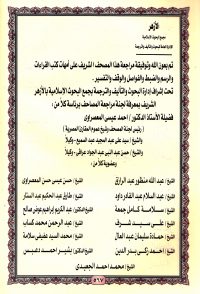 الأزهر
مجمع البحوث الإسلامية
الإدارة العامة للبحوث والتأليف والترجمة
تم بعون الله وتوفيقه مراجعة هذا المصحف الشريف على أمهات كتب القراءات
والرسم والضبط والفواصل والوقف والتفسير.
تحت إشراف إدارة البحوث والتأليف والترجمة بمجمع البحوث الإسلامية بالأزهر
الشريف بمعرفة لجنة مراجعة المصاحف برئاسة كلا من:
فضيلة الأستاذ الدكتور / أحمد عيسى المعصراوى
(رئيس لجنة المصحف وشيخ عموم المقارئ المصرية)
والشيخ / سيد على عبد المجيد عبد السميع - وكيلا
والشيخ / حسن عبد النبى عبد الجواد عراقى - وكيلا
وعضوية كلا من:
الشيخ / عبد الله منظور عبد الرازق الشيخ / حسن عيسى حسن المعصراوى
الشيخ / عبد السلام عبد القادر داود الشيخ / طارق عبد الحكيم عبد الستار
الشيخ / سلامة كامل جمعة الشيخ الدكتور / عبد الكريم إبراهيم عوض صالح
الشيخ / على سيد شرف الشيخ / عبد الرحمن محمد كساب
الشيخ / حمادة سليمان عبد العال الشيخ / محمد السيد عفيفى سلامة
الشيخ / أحمد زكى بدر الدين الشيخ الدكتور / بشير أحمد دعبس
الشيخ / محمد أحمد الجعيدى
٥١٧